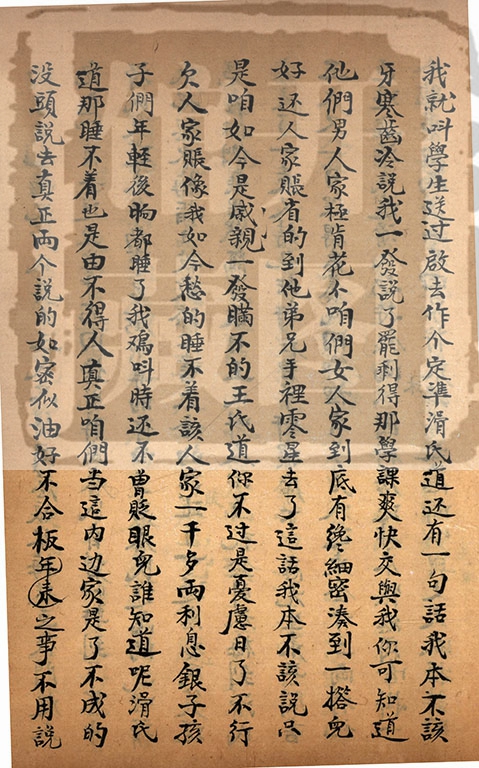 我就呌學生送过啟去作个定準滑氏道还有一句話我本不該
牙寒齒冷說我一發說了罷剩得那學課爽快交與我你可知道
他們男人家極肯花不咱們女人家到底有纔細密湊到一搭兒
好还人家賬省的到他弟兄手裡零星去了這話我本不該說只
是咱如今是慼親一發瞞不的王氏道你不过是憂慮日了不行
欠人家賬像我如今愁的睡不着該人家一千多両利息銀子孩
子們年輕後晌都睡了我鷄呌時还不曾眨眼兒誰知道呢滑氏
道那睡不着也是由不得人真正咱們当這内边家是了不成的
没頭說去真正両个說的如宻似油好不合板年来之事不用說